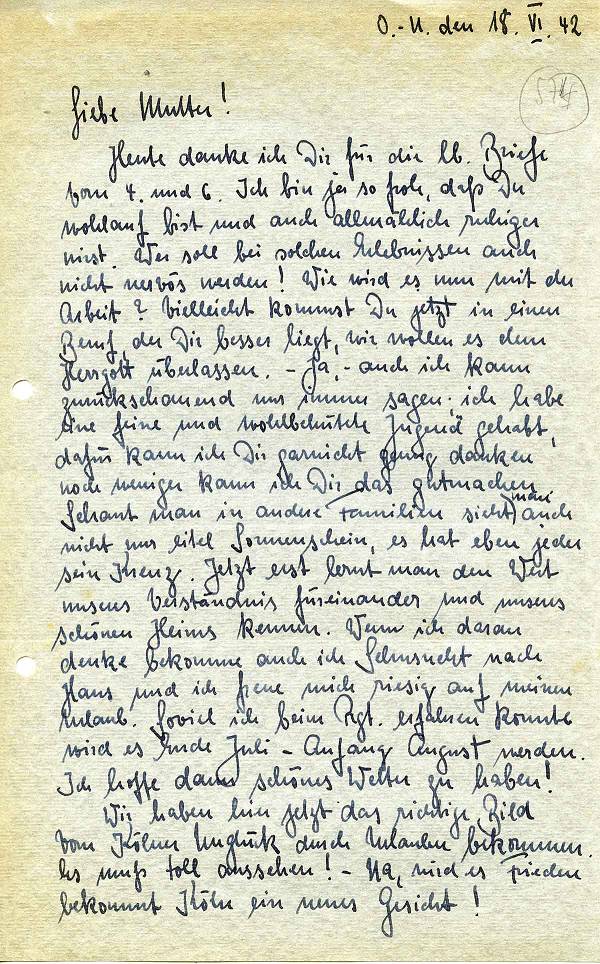 O.-U. den 18. VI. 42
574
Liebe Mutter!
Heute danke ich Dir für die lb. Briefe
vom 4. und 6. Ich bin ja so froh, daß Du
wohlauf bist und auch allmählich ruhiger
wirst. Wer soll bei solchen Erlebnissen auch
nicht nervös werden! Wie wird es nun mit der
Arbeit? Vielleicht kommst Du jetzt in einen
Beruf, der Dir besser liegt, wir wollen es dem
Herrgott überlassen. - Ja, - auch ich kann
zurückschauend nur immer sagen: ich habe
eine feine und wohlbehütete Jugend gehabt,
dafür kann ich Dir garnicht genug danken
noch weniger kann ich Dir das gutmachen.
Schaut man in andere Familien sieht man auch
nicht nur eitel Sonnenschein, es hat eben jeder
sein Kreuz. Jetzt erst lernt man den Wert
unseres Verständnis füreinander und unseres
schönen Heims kennen. Wenn ich daran
denke bekomme auch ich Sehnsucht nach
Haus und ich freue mich riesig auf meinen
Urlaub. Soviel ich beim Rgt. erfahren konnte
wird es Ende Juli - Anfang August werden.
Ich hoffe dann schönes Wetter zu haben!
Wir haben hier jetzt das richtige Bild
vom Kölner Unglück durch Urlauber bekommen.
Es muß toll aussehen! - Na, wird es Frieden
bekommt Köln ein neues Gesicht!